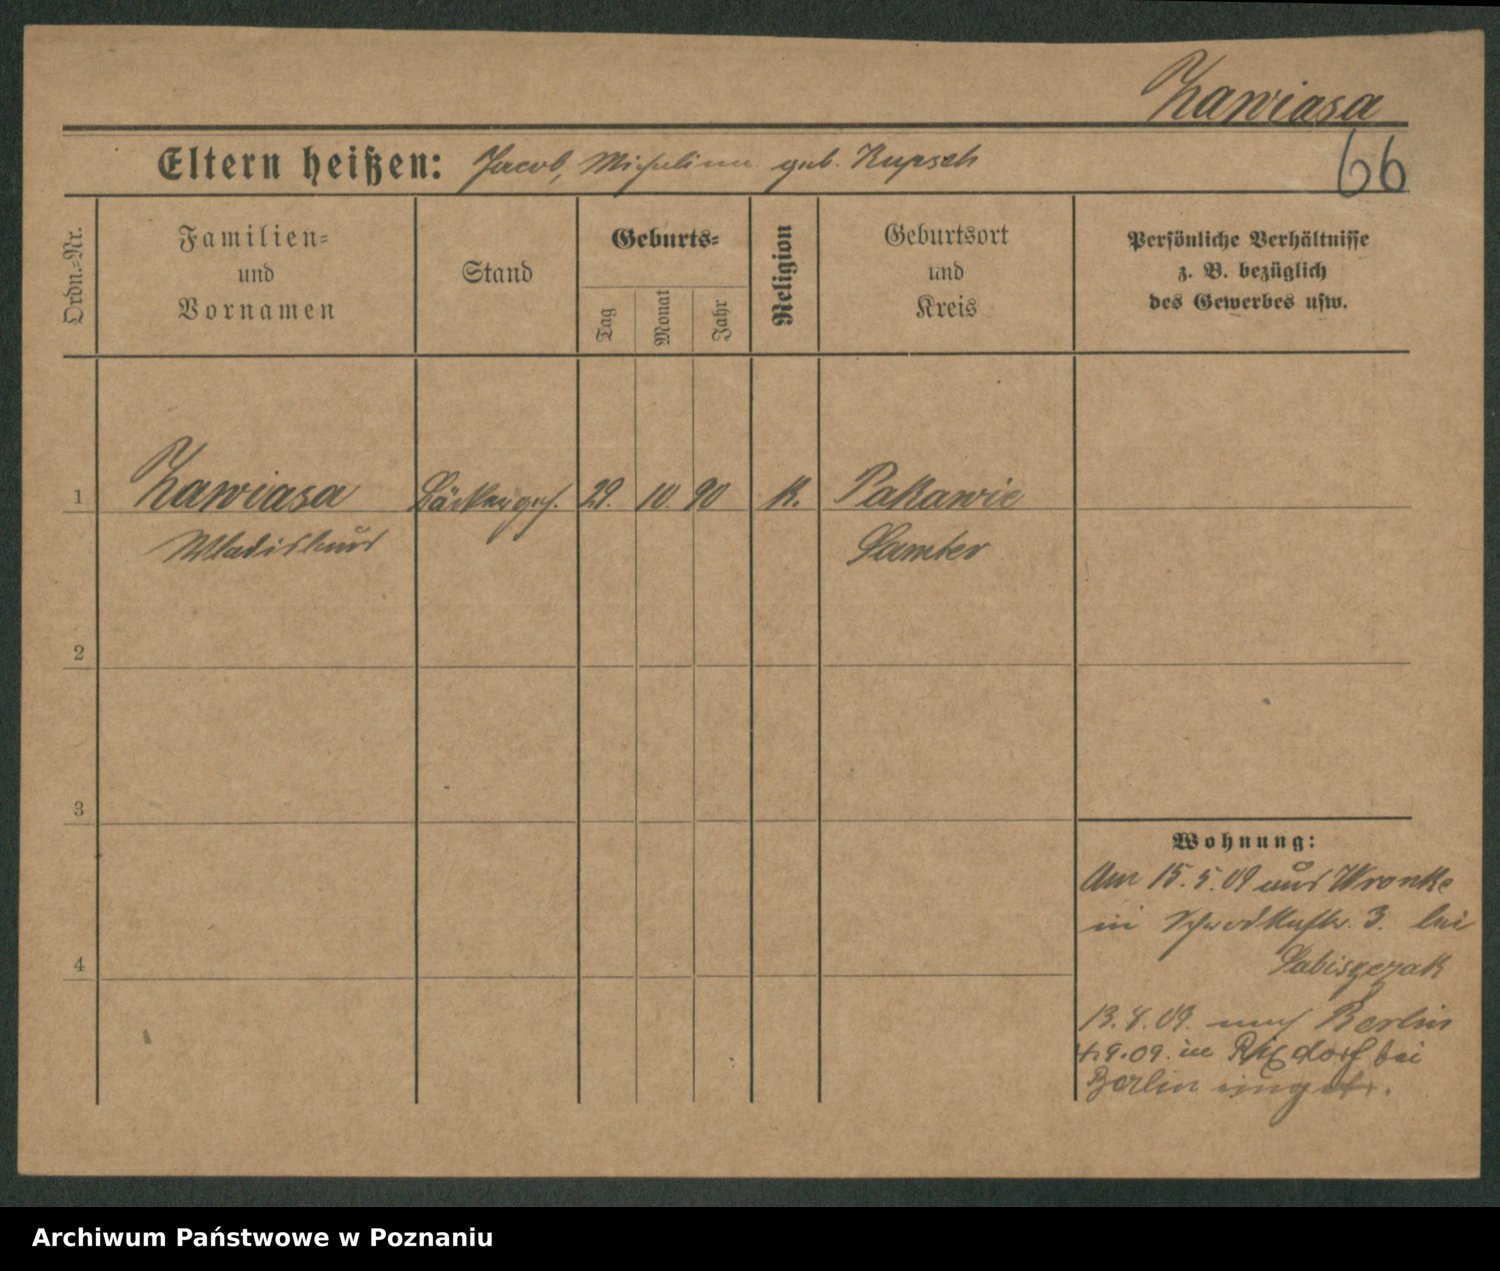 Zawiasa
66
Eltern heißen: Jacob, Michalina geb. Kupsch
Ordn.-Nr.
Familien-
und
Vornamen
Stand
Geburts-
Tag
Monat
Jahr
Religion
Geburtsort
und
Kreis
Persönliche Verhältnisse
z. B. bezüglich
des Gewerbes usw.
1 Zawiasa Bäckerges. 29. 10. 90 K. Pakawie
Wladislaus Samter
2
3
4
Wohnung:
Am 15.5.09 aus Wronke
in Schrodkastr. 3. bei
13.8.09. nach Berlin
9.09. in Rixdorf bei
Berlin
Archiwum Państwowe w Poznaniu